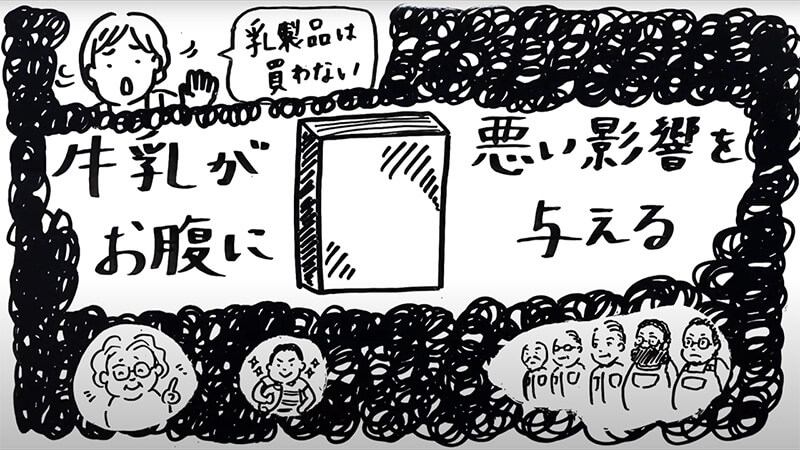 乳製品は
買わない
牛乳が
お腹に
悪い影響を
与える